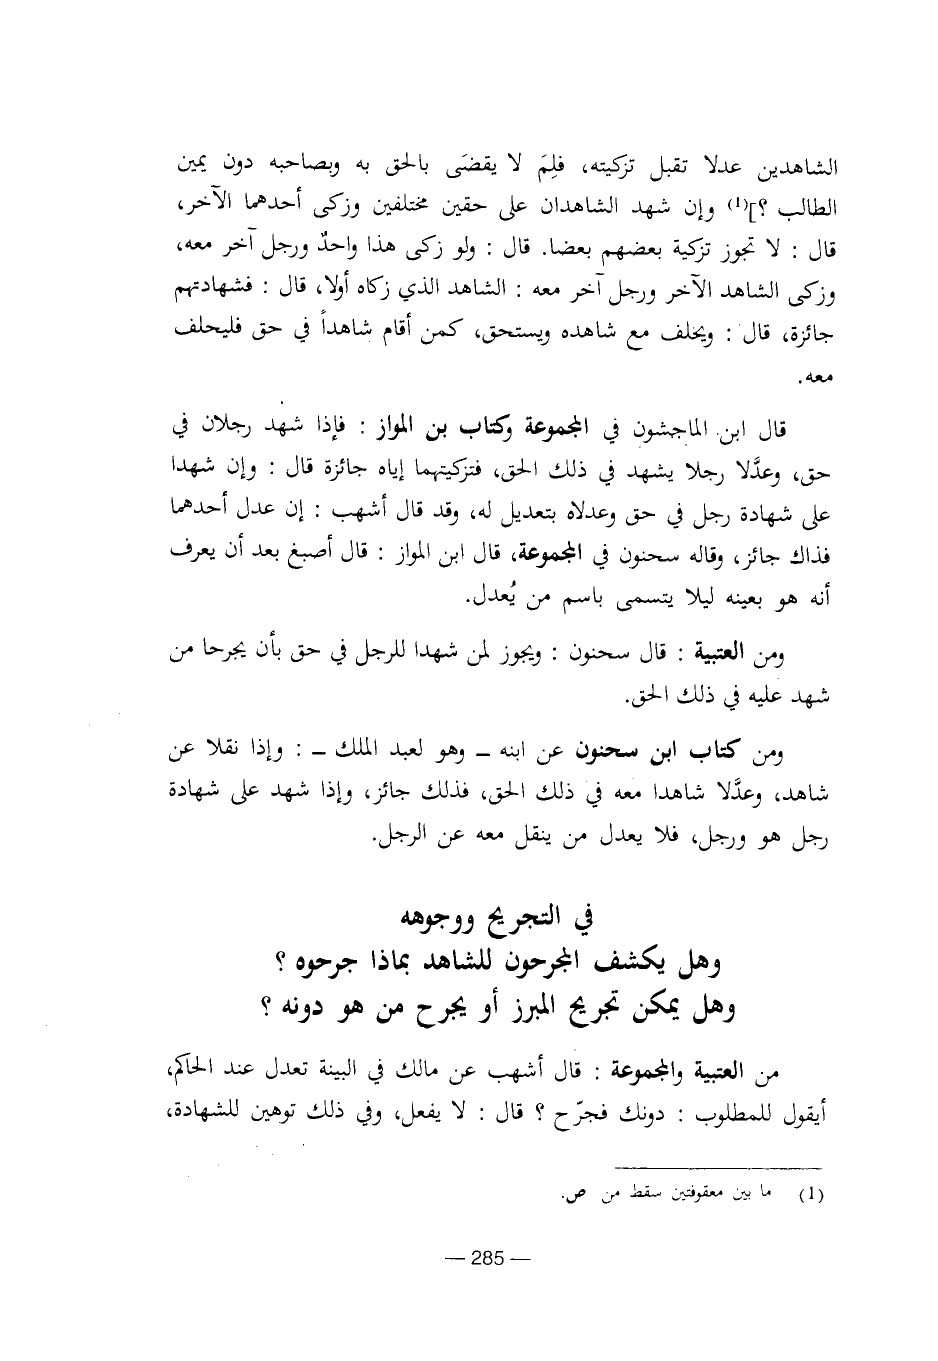 الشاهدين عدلا تقبل تزكيته، فلِمَ لا يقضَى بالحق به وبصاحبه دون يمين
الطالب ؟](1) وإن شهد الشاهدان على حقين مختلفين وزكى أحدهما الآخر،
قال : لا تجوز تزكية بعضهم بعضا. قال : ولو زكى هذا واحدٌ ورجل آخر معه،
وزكى الشاهد الآخر ورجل آخر معه : الشاهد الذي زكاه أولا، قال : فشهادتهم
جائزة، قال : ويحلف مع شاهده ويستحق، كمن أقام شاهداً في حق فليحلف
معه.
قال ابن الماجشون في المجموعة وكتاب بن المواز : فإذا شهد رجلان في
حق، وعدَّلا رجلا يشهد في ذلك الحق، فتزكيتهما إياه جائزة قال : وإن شهدا
على شهادة رجل في حق وعدلاه بتعديل له، وقد قال أشهب : إن عدل أحدهما
فذاك جائز، وقاله سحنون في المجموعة، قال ابن المواز : قال أصبغ بعد أن يعرف
أنه هو بعينه ليلا يتسمى باسم من يُعدل.
ومن العتبية : قال سحنون : ويجوز لمن شهدا للرجل في حق بأن يجرحا من
شهد عليه في ذلك الحق.
ومن كتاب ابن سحنون عن ابنه ــ وهو لعبد الملك ــ : وإذا نقلا عن
شاهد، وعدَّلا شاهدا معه في ذلك الحق، فذلك جائز، وإذا شهد على شهادة
رجل هو ورجل، فلا يعدل من ينقل معه عن الرجل.
في التجريح ووجوهه
وهل يكشف المجرحون للشاهد بماذا جرحوه ؟
وهل يمكن تجريح المبرز أو يجرح من هو دونه ؟
من العتبية والمجموعة : قال أشهب عن مالك في البينة تعدل عند الحاكم،
أيقول للمطلوب : دونك فجرّح ؟ قال : لا يفعل، وفي ذلك توهين للشهادة،
(1) ما بين معقوفتين سقط من ص.
— 285 —